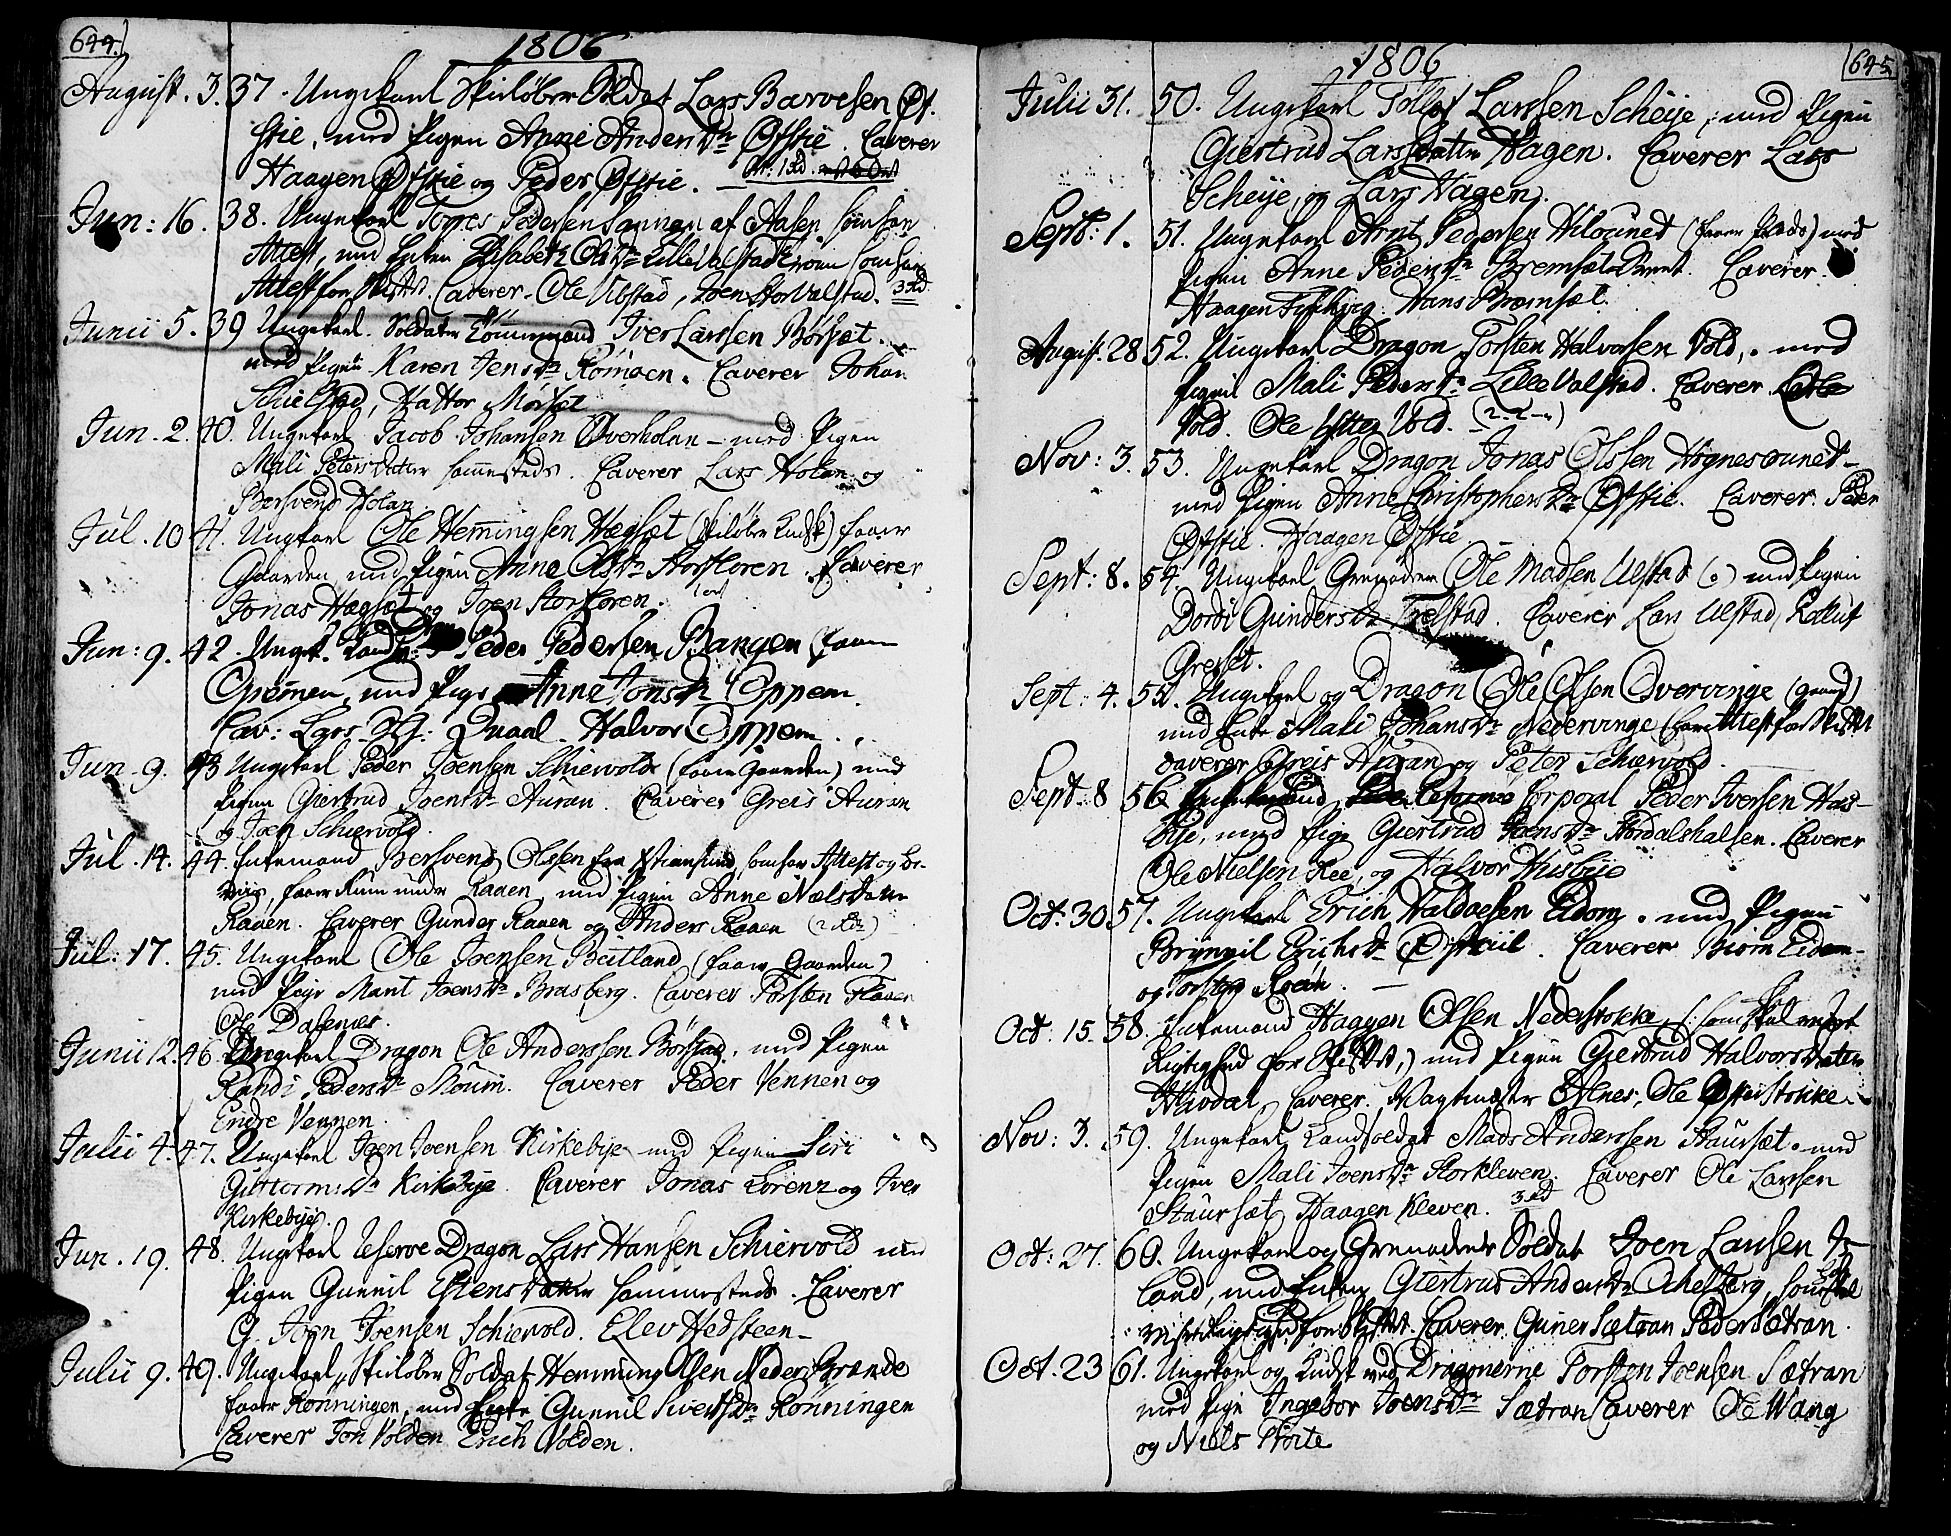 644.
1806
August. 3. 37. Ungekarl Skieløber Soldat Lars Barvesen Øf-
stie, med Pigen Anne Anders Dr Øfstie. Caverer
Haagen Øfstie og Peder Øfstie.
Jun: 16. 38. Ungekarl Tomes Pedersen af Aasen som har
Attest, med Enken Elisabeth Ols Dr Lille Valstad som har
Attest for Skiftet. Caverer Ole Vibstad, Joen StorValstad. 3 Rd
Junii 5. 39 Ungekarl. Soldater Tømmermand Iver Larssen Børsæt.
med Pigen Karen Jens Dr Rømoen. Caverer Johan
Schielstad, Hattor Mørsæt
Jun. 2. 40. Ungekarl Jacob Johansen Overholan - med Pigen
Mali Peters Datter sammesteds. Caverer Lars Holan og
Bersvend Holan
Jul. 10 41. Ungkarl Ole Hemingsen Hægsæt (Skiløber Kudsk) faaer
Gaarden, med Pigen Anne Ols Dr StorFloren. Caverer
Jonas Hægsæt og Joen Storfloren.
Jun: 9. 42. Ungk. Peder Pedersen Bangen (faaer
Opemen, med Pige Anne Jons Dr Oppem.
Cav: Lars Qvaal - Halvor Oppem.
Jun. 9. 43 Ungekarl Peder Joensen Schiervold (faaer Gaarden) med
Pigen Giertrud Joens Dr Auran. Caverer Greis Auran
og Joen Schiervold.
Jul. 14. 44. Enkemand Bersvend Olsen fra Xtiansund, som har Attest og be-
viis, faaer Rum under Raaen, med Pigen Anne Niels Datter
Raaen. Caverer Gunder Raaen og Anders Raaen (2 Rdr)
Jul: 17. 45. Ungekarl Ole Joensen Beitland (faaer Gaarden)
med Pige Marit Joens Dr Brasberg. Caverer Torsten Flaaen
Ole Dalemes.
Junii 12. 46. Ungekarl Dragon Ole Anderssen Børstad, med Pigen
Randi Peders Dr Moum. Caverer Peder Vennen og
Endre Vennen.
Julii 4. 47. Ungekarl Joen Joensen Kirkebye med Pigen Siri
Guttorms Dr Kirkebye. Caverer Jonas Lorenz og Iver
Kirkebye.
Jun. 19. 48. Ungekarl Reserve Dragon Lars Hansen Schiervold med
Pigen Gunnil Estens Datter sammesteds. Caverer
O. Joen Joensen Schiervold. Elev Hedsteen
Julii 9. 49. Ungekarl, Skieløber Soldat Hemming Olsen Neder Grande
faaer Rønningen, med Enke Gunnil Sivers Dr Rønningen
Caverer Jon Volden Erich Volden.
645
1806
Julii 31. 50. Ungekarl Tollof Larssen Scheije, med Pigen
Giertrud Larsdatter Hagen. Caverer Lars
Scheije, og Lars Hagen.
Sept: 1. 51. Ungekarl Arnt Pedersen Hilounet med
Pigen Anne Peders Dr Bremsæt. Caverer
Haagen, Hans Bremsæt.
August. 28 52. Ungekarl Dragon Torsten Halvorsen Vold, med
Pigen Mali Peders Dr LilleValstad. Caverer
Vold. Ole Ytter Vold.
Nov: 3. 53. Ungekarl Dragon Jonas Olssen Hognesounet
med Pigen Anne Christophers Dr Øfstie. Caverer Peder
Øfstie. Haagen Øfstie
Sept: 8. 54. Ungekarl Grenadeer Ole Madsen Ulstad (o) med Pigen
Dordi Gunders Dr Trelstad. Caverer Lars Ulstad, Rolluf
Gresset.
Sept: 4. 55. Ungekarl og Dragon Ole Olsen Overvinge (Gaard)
med Enke Mali Johans Dr Nedervinge (har Attest for Skiftet
Caverer Greis Auran og Peter Schiervold.
Sept: 8 56 Corporal Peder Iversen Hus-
bye, med Pige Giertrud Joens Dr Stordalshalsen. Caverer
Ole Nielsen Ree, og Halvor Husbye
Oct. 30 57. Ungekarl Erich Haldosen Eidom. med Pigen
Brynnil Erichs Dr. Caverer Biørn Eidom
og Torsten.
Oct. 15. 58. Enkemand Haagen Olsen Nederstokke, (som skal
Rigtighed for Skiftet,) med Pigen Giertrud Halvors Datter
Mavdal, Caverer, Vagtmester Elnes, Ole Øfsti Stokke
Nov: 3. 59. Ungekarl Landsoldat Mads Anderssen Staursæt. med
Pigen Mali Joens Dr Storkleven. Caverer Ole Larssen
Staursæt Haagen Kleven. 3 Rd
Oct: 27. 60. Ungekarl og Grenadeer Soldat Joen Larssen Ip-
land, med Enken Giertrud Anders Dr, som skal
vise Rigtighed for Skiftet. Caverer. Guner Sætran Peder Sætran.
Oct. 23 61. Ungekarl og Kudsk ved Dragonerne Torsten Joensen Sætran
med Pige Ingebor Joens Dr Sætran Caverer Ole Wang
og Niels